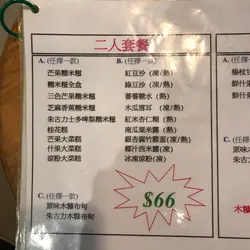 二人套餐
A. (任擇一款)
芒果糯米糍
糯米糍全盒
三色芒果糯米糍
芝麻香蕉糯米糍
朱古力士多啤梨糯米糍
桂花糕
芒果大菜糕
什果大菜糕
涼粉大菜糕
B. (任擇一款)
紅豆沙 (凍/熱)
綠豆沙 (凍/熱)
蕃薯糖水 (熱)
木瓜雪耳 (凍/熱)
紅米杏仁糊 (熱)
南瓜粟米露 (熱)
銀杏腐竹薏米 (凍/熱)
椰汁西米露 (凍)
冰凍涼粉 (凍)
C. (任擇一款)
原味木糠布甸
朱古力木糠布甸
$66
A. (任
楊枝甘
鮮什果
鮮什
C. (任
原味木
朱古力
木糠